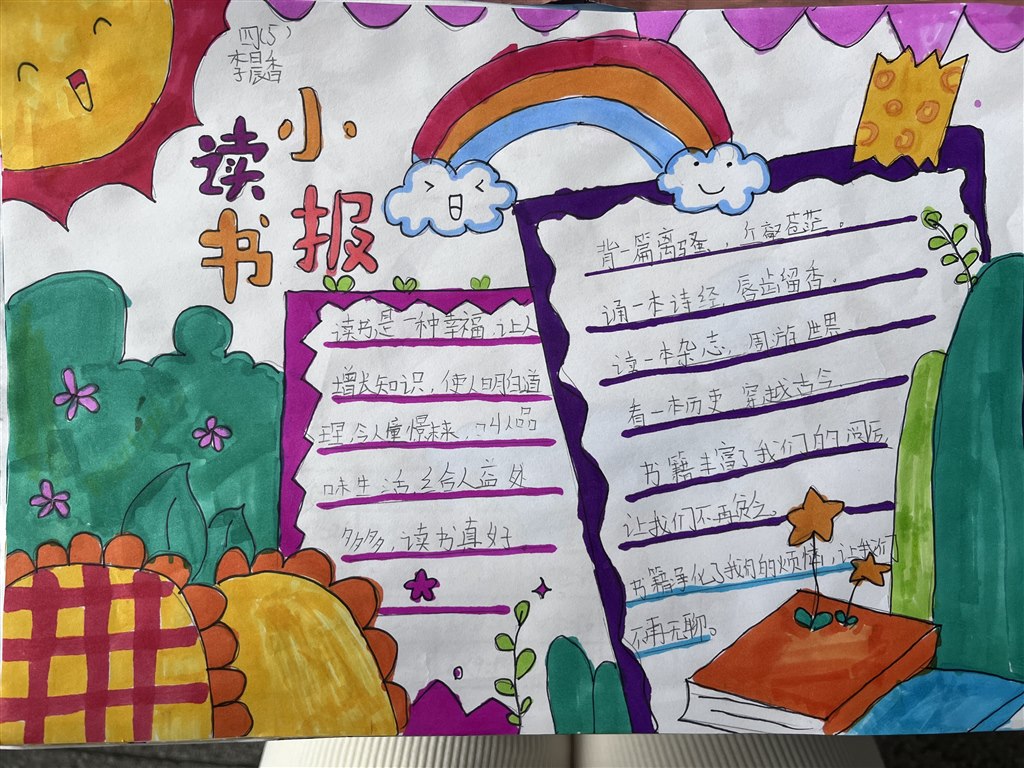 四(5)
李晨香
读书
小报
读书是一种幸福,让人
增长知识,使人明白道
理,令人憧憬未来,
味生活,给人益处
多多,读书真好
背一篇离骚,苍茫。
诵一本诗经,唇齿留香。
读一本杂志,周游世界,
看一本历史,穿越古今,
书籍丰富了我们的阅历
让我们不再贫乏。
书籍净化了我们的烦恼,让我们
不再无聊。